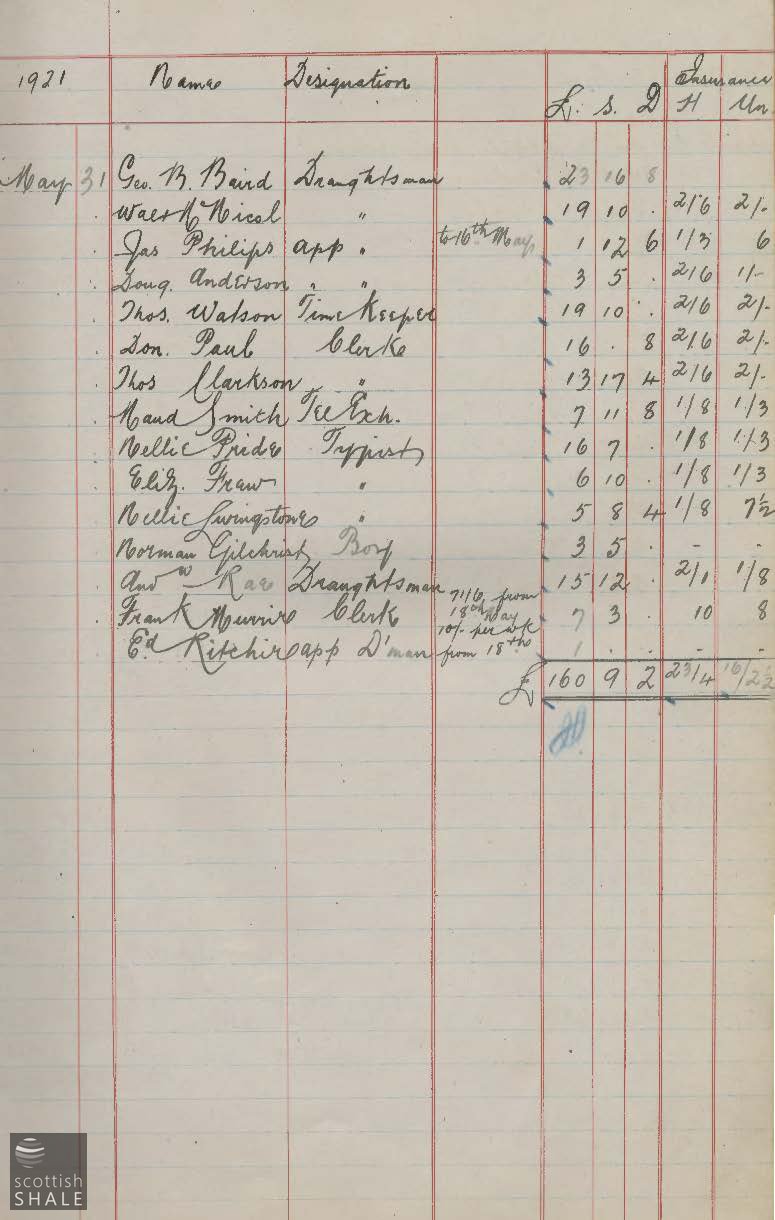 Insurance
1921 Name Designation £. s. D H Un.
May 31 Geo. B. Baird Draughtsman 23 16 8
Walt M Nicol " 19 10 . 2/6 2/-
Jas Philips app " to 16th May 1 12 6 1/3 6
Doug. Anderson " " 3 5 . 2/6 1/-
Thos. Watson Time Keeper 19 10 . 2/6 2/-
Don. Paul Clerk 16 . 8 2/6 2/-
Thos Clarkson " 13 17 4 2/6 2/-
Maud Smith Tel Exch. 7 11 8 1/8 1/3
Nellie Pride Typist 16 7 . 1/8 1/3
Eliz. Fraw " 6 10 . 1/8 1/3
Nellie Livingstone " 5 8 4 1/8 7½
Norman Gilchrist Boy 3 5 . - -
Andw Rae Draughtsman 15 12 . 2/1 1/8
71/6 from
Frank Murrie Clerk 18th May 7 3 . 10 8
10/- per wk
Ed Ritchie app D'man from 18th 1 . . - -
£ 160 9 2 23/4 16/2½
scottish
SHALE